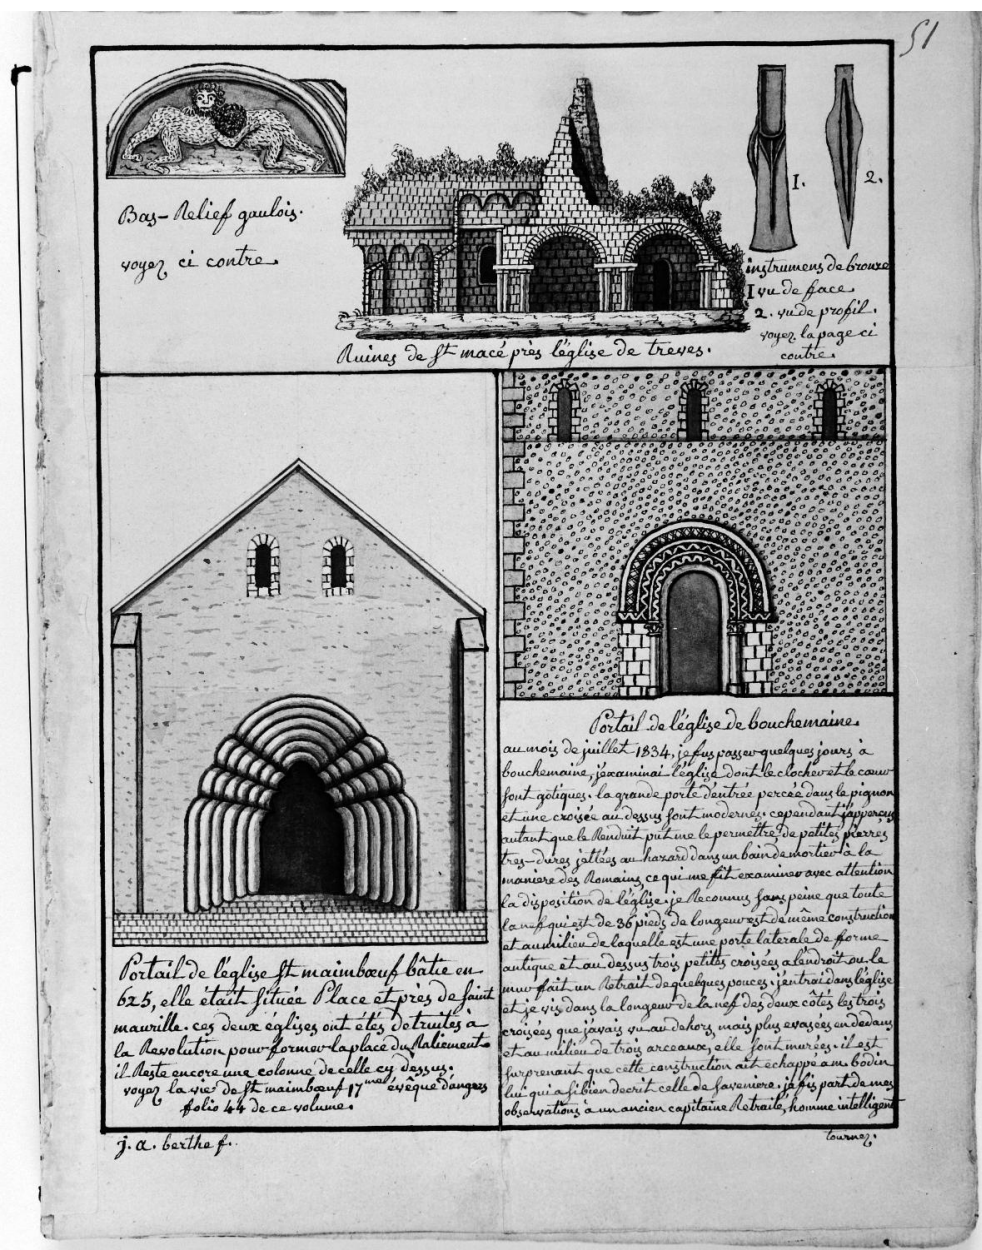 51
Bas-Relief gaulois.
voyez ci contre.
1.
2.
instrumens de bronze
1 vu de face
2. vu de profil.
voyez la page ci
contre.
Ruines de St macé près l'église de treves.
Portail de l'église St maimbœuf bâtie en
625, elle était située Place et près de Saint
maurille. ces deux églises ont étés détruites à
la Revolution pour former la place du Raliement.
il Reste encore une colonne de celle cy dessus.
voyez la vie de St maimbœuf 17me évêque d'angers
folio 44 de ce volume.
j. a. berthe f.
Portail de l'église de bouchemaine.
au mois de juillet 1834, je fus passer quelques jours à
bouchemaine, j'examinai l'église dont le clocher et le cœur
sont gotiques. la grande porte d'entrée percée dans le pignon
et une croisée au dessus sont modernes. cependant j'apperçus
autant que le Renduit put me le permettre, de petites pierres
tres-dures jettées au hazard dans un bain de mortier à la
maniere des Romains, ce qui me fit examiner avec attention
la disposition de l'église. je Reconnus sans peine que toute
la nef qui est de 36 pieds de longeur est de même construction
et au milieu de laquelle est une porte laterale de forme
antique et au dessus trois petites croisées a l'endroit ou le
mur fait un Retrait de quelques pouces. j'entrai dans l'église
et je vis dans la longeur de la nef des deux côtés les trois
croisées que j'avais vu au dehors, mais plus evasées en dedans
et au milieu de trois arceaux, elle sont murées. il est
surprenant que cette construction ait echappé a mr. bodin
lui qui a si bien decrit celle de saveniere. je fis part de mes
observations a un ancien capitaine Retraité, homme intelligent
tournez.